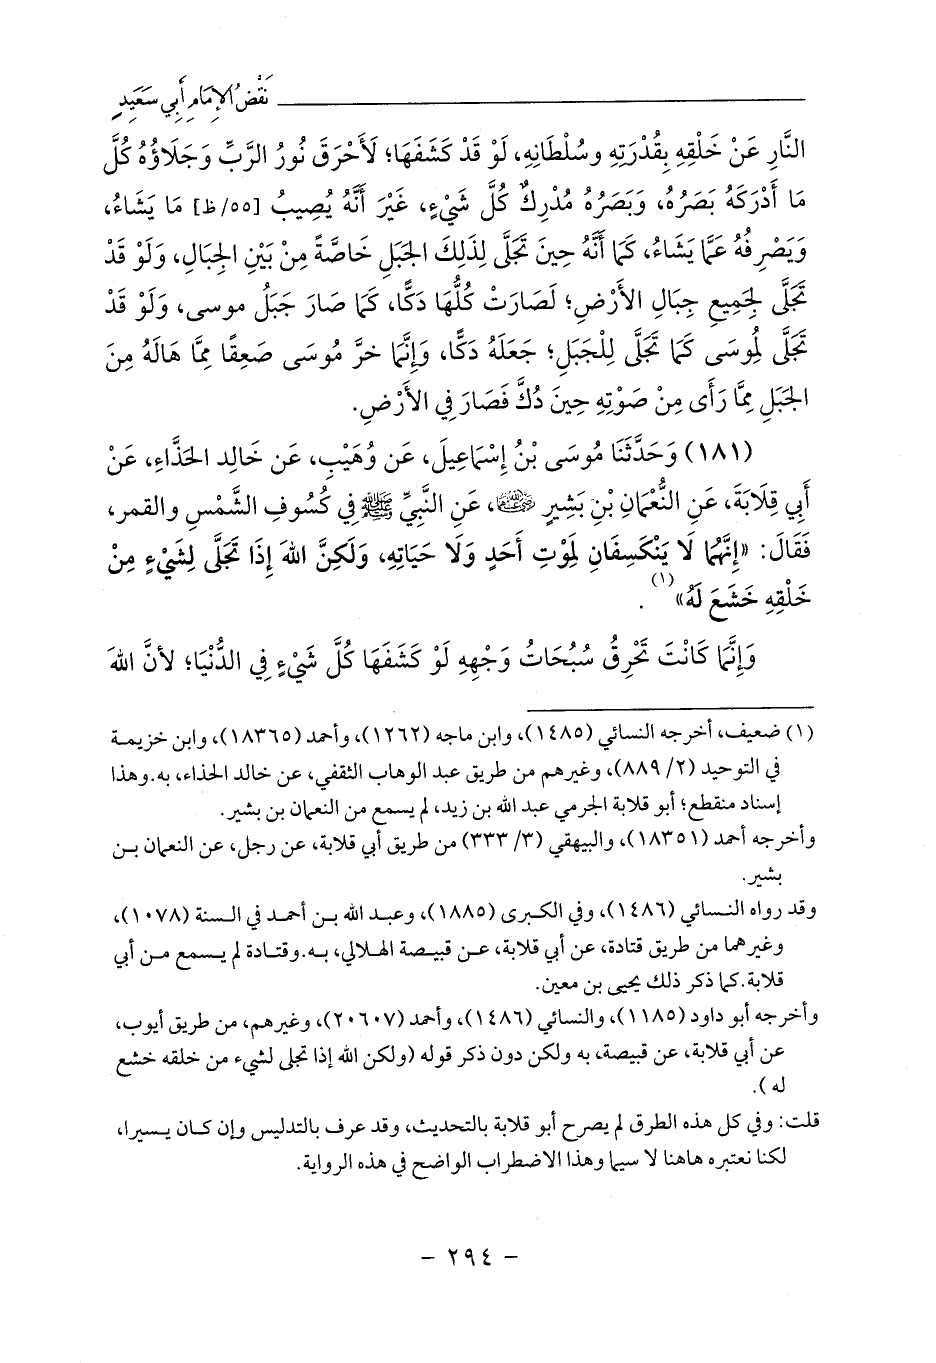 نَقْضُ الإِمَامِ أَبِي سَعِيدٍ
النَّارِ عَنْ خَلْقِهِ بِقُدْرَتِهِ وسُلْطَانِهِ، لَوْ قَدْ كَشَفَهَا؛ لَأَحْرَقَ نُورُ الرَّبِّ وَجَلَاؤُهُ كُلَّ
مَا أَدْرَكَهُ بَصَرُهُ، وَبَصَرُهُ مُدْرِكٌ كُلَّ شَيْءٍ، غَيْرَ أَنَّهُ يُصِيبُ [٥٥/ظ] مَا يَشَاءُ،
وَيَصْرِفُهُ عَمَّا يَشَاءُ، كَمَا أَنَّهُ حِينَ تَجَلَّى لِذَلِكَ الجَبَلِ خَاصَّةً مِنْ بَيْنِ الجِبَالِ، وَلَوْ قَدْ
تَجَلَّى لِجَمِيعِ جِبَالِ الأَرْضِ؛ لَصَارَتْ كُلُّهَا دَكًّا، كَمَا صَارَ جَبَلُ موسى، وَلَوْ قَدْ
تَجَلَّى لِمُوسَى كَمَا تَجَلَّى لِلْجَبَلِ؛ جَعَلَهُ دَكًّا، وَإِنَّمَا خرَّ مُوسَى صَعِقًا مِمَّا هَالَهُ مِنَ
الجَبَلِ مِمَّا رَأَى مِنْ صَوْتِهِ حِينَ دُكَّ فَصَارَ فِي الأَرْضِ.
(١٨١) وَحَدَّثَنَا مُوسَى بْنُ إِسْمَاعِيلَ، عَن وُهَيْبٍ، عَن خَالِد الحَذَّاءِ، عَنْ
أَبِي قِلَابَةَ، عَنِ النُّعْمَانِ بْنِ بَشِيرٍ ﵁، عَنِ النَّبِيِّ ﷺ فِي كُسُوفِ الشَّمْسِ والقمر،
فَقَالَ: «إِنَّهُمَا لَا يَنْكَسِفَانِ لِمَوْتِ أَحَدٍ وَلَا حَيَاتِهِ، وَلَكِنَّ اللهَ إِذَا تَجَلَّى لِشَيْءٍ مِنْ
خَلْقِهِ خَشَعَ لَهُ»(١).
وَإِنَّمَا كَانَتْ تَحْرِقُ سُبُحَاتُ وَجْهِهِ لَوْ كَشَفَهَا كُلَّ شَيْءٍ فِي الدُّنْيَا؛ لأنَّ اللهَ
(١) ضعيف، أخرجه النسائي (١٤٨٥)، وابن ماجه (١٢٦٢)، وأحمد (١٨٣٦٥)، وابن خزيمة
في التوحيد (٢/ ٨٨٩)، وغيرهم من طريق عبد الوهاب الثقفي، عن خالد الحذاء، به.وهذا
إسناد منقطع؛ أبو قلابة الجرمي عبد الله بن زيد، لم يسمع من النعمان بن بشير.
وأخرجه أحمد (١٨٣٥١)، والبيهقي (٣/ ٣٣٣) من طريق أبي قلابة، عن رجل، عن النعمان بن
بشير.
وقد رواه النسائي (١٤٨٦)، وفي الكبرى (١٨٨٥)، وعبد الله بن أحمد في السنة (١٠٧٨)،
وغيرهما من طريق قتادة، عن أبي قلابة، عن قبيصة الهلالي، به.وقتادة لم يسمع من أبي
قلابة.كما ذكر ذلك يحيى بن معين.
وأخرجه أبو داود (١١٨٥)، والنسائي (١٤٨٦)، وأحمد (٢٠٦٠٧)، وغيرهم، من طريق أيوب،
عن أبي قلابة، عن قبيصة، به ولكن دون ذكر قوله (ولكن الله إذا تجلى لشيء من خلقه خشع
له).
قلت: وفي كل هذه الطرق لم يصرح أبو قلابة بالتحديث، وقد عرف بالتدليس وإن كان يسيرا،
لكنا نعتبره هاهنا لا سيما وهذا الاضطراب الواضح في هذه الرواية.
- ٢٩٤ -